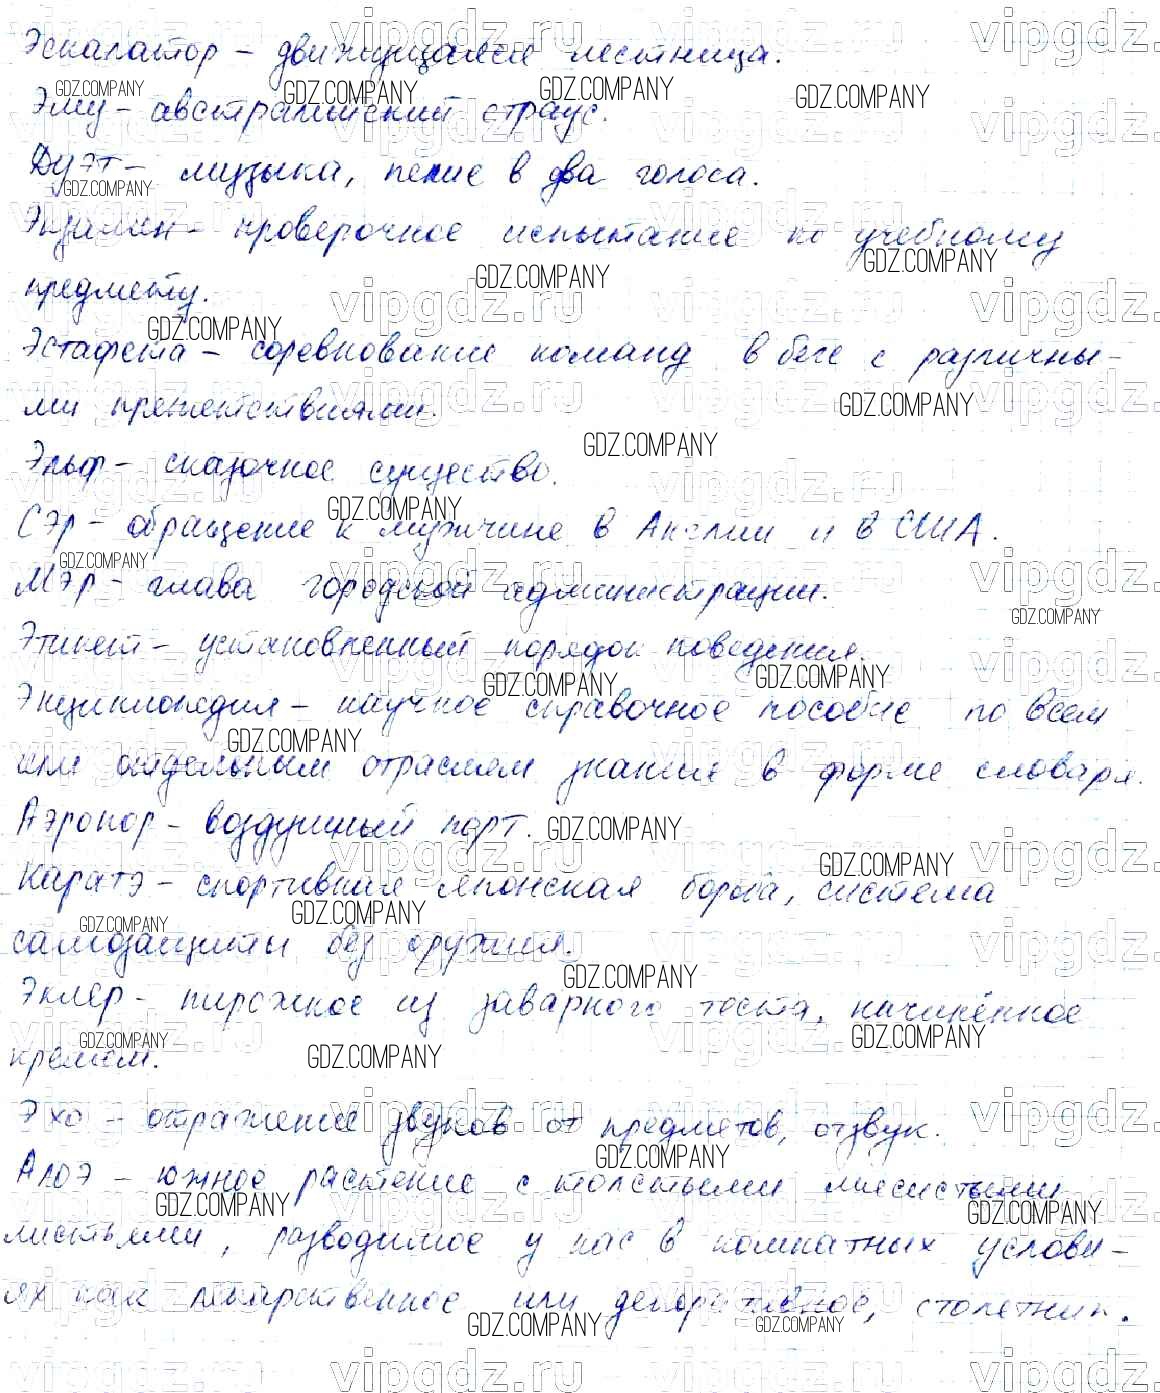 Эскалатор – движущаяся лестница.
Эму – австралийский страус.
Дуэт – музыка, пение в два голоса.
Экзамен – проверочное испытание по учебному
предмету.
Эстафета – соревнование команд в беге с различны-
ми препятствиями.
Эльф – сказочное существо.
Сэр – обращение к мужчине в Англии и в США.
Мэр – глава городской администрации.
Этикет – установленный порядок поведения.
Энциклопедия – научное справочное пособие по всем
или отдельным отраслям знания в форме словаря.
Аэропор – воздушный порт.
Каратэ – спортивная японская борьба, система
самозащиты без оружия.
Эклер – пирожное из заварного теста, начинённое
кремом.
Эхо – отражение звуков от предметов, отзвук.
Алоэ – южное растение с толстыми мясистыми
листьями, разводимое у нас в комнатных услови-
ях как лекарственное или декоративное, столетник.